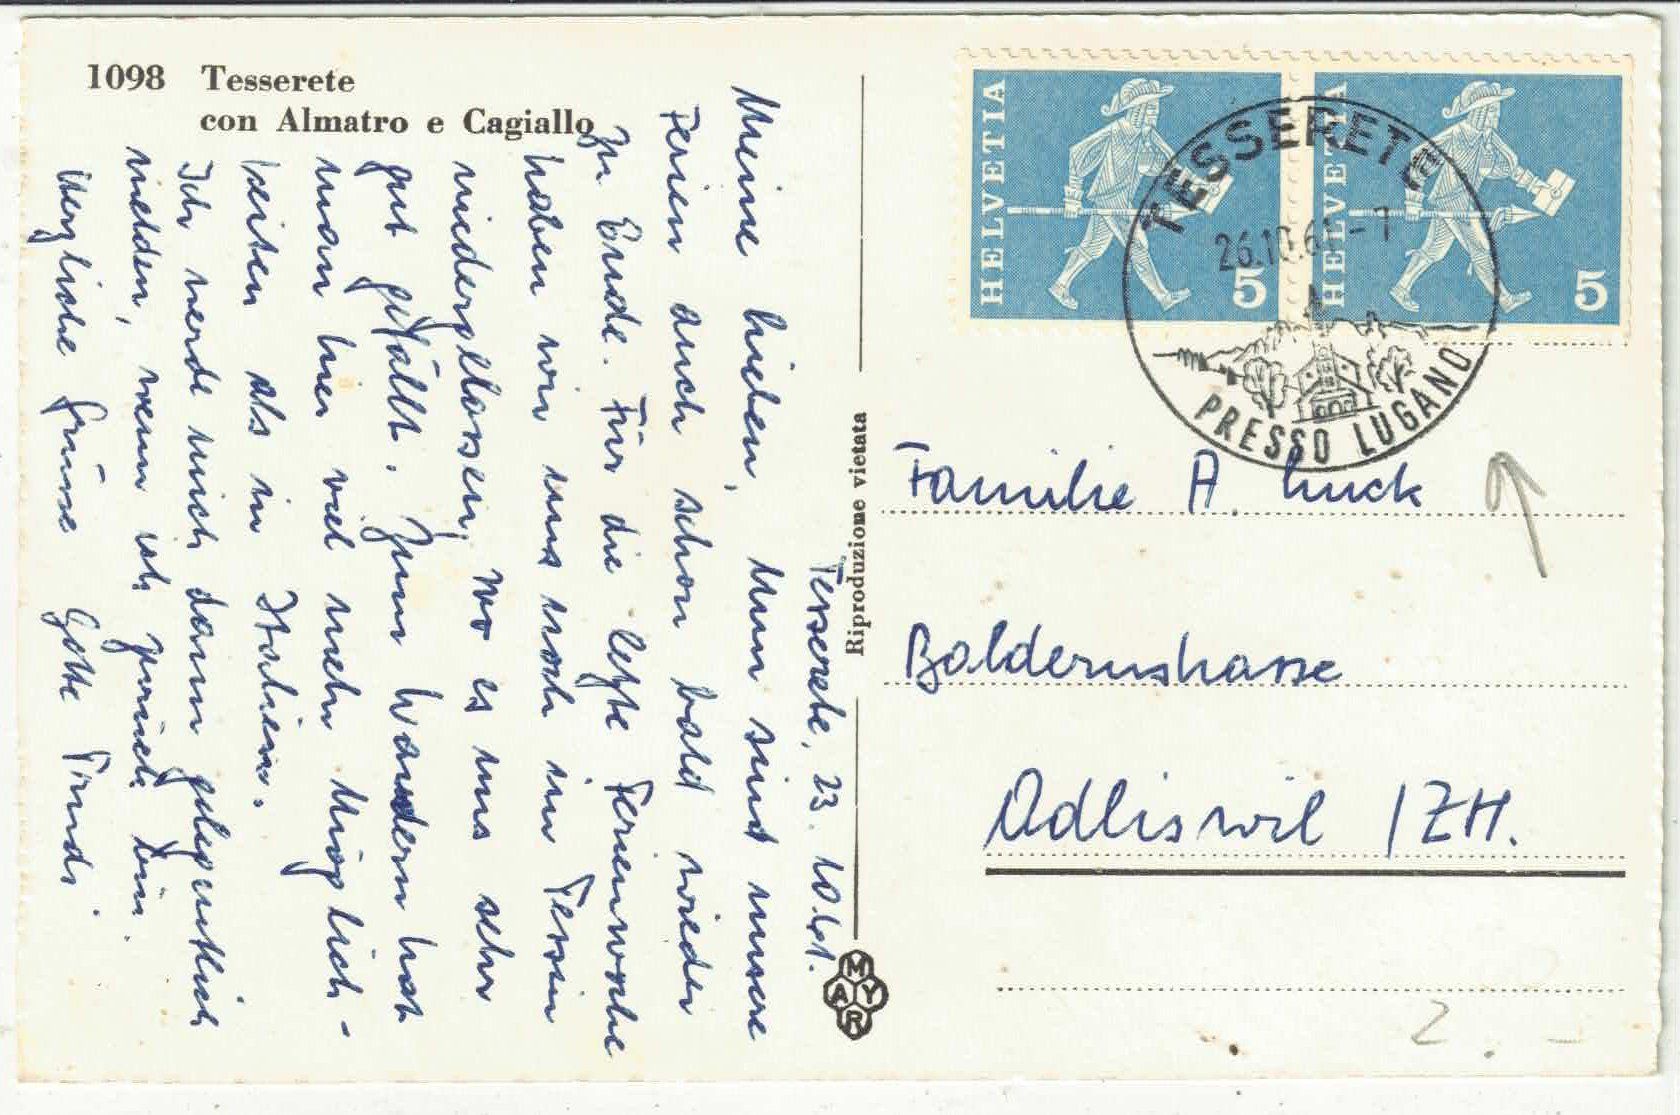 1098 Tesserete
con Almatro e Cagiallo
Tesserete, 23. 10. 61.
Meine Lieben, Nun sind unsere
Ferien auch schon bald wieder
zu Ende. Für die letzte Ferienwoche
haben wir uns noch im Tessin
niedergelassen, wo es uns sehr
gut gefällt. Zum Wandern hat
man hier viel mehr Möglich-
keiten als in Italien.
Ich werde mich dann gelegentlich
melden, wenn ich zurück bin.
Herzliche Grüsse Gotte Trudi
Riproduzione vietata
MAYR
HELVETIA 5
HELVETIA 5
TESSERETE
26.10.61-7
PRESSO LUGANO
Familie A. Luck
Baldernstrasse
Adliswil / ZH.
2.-